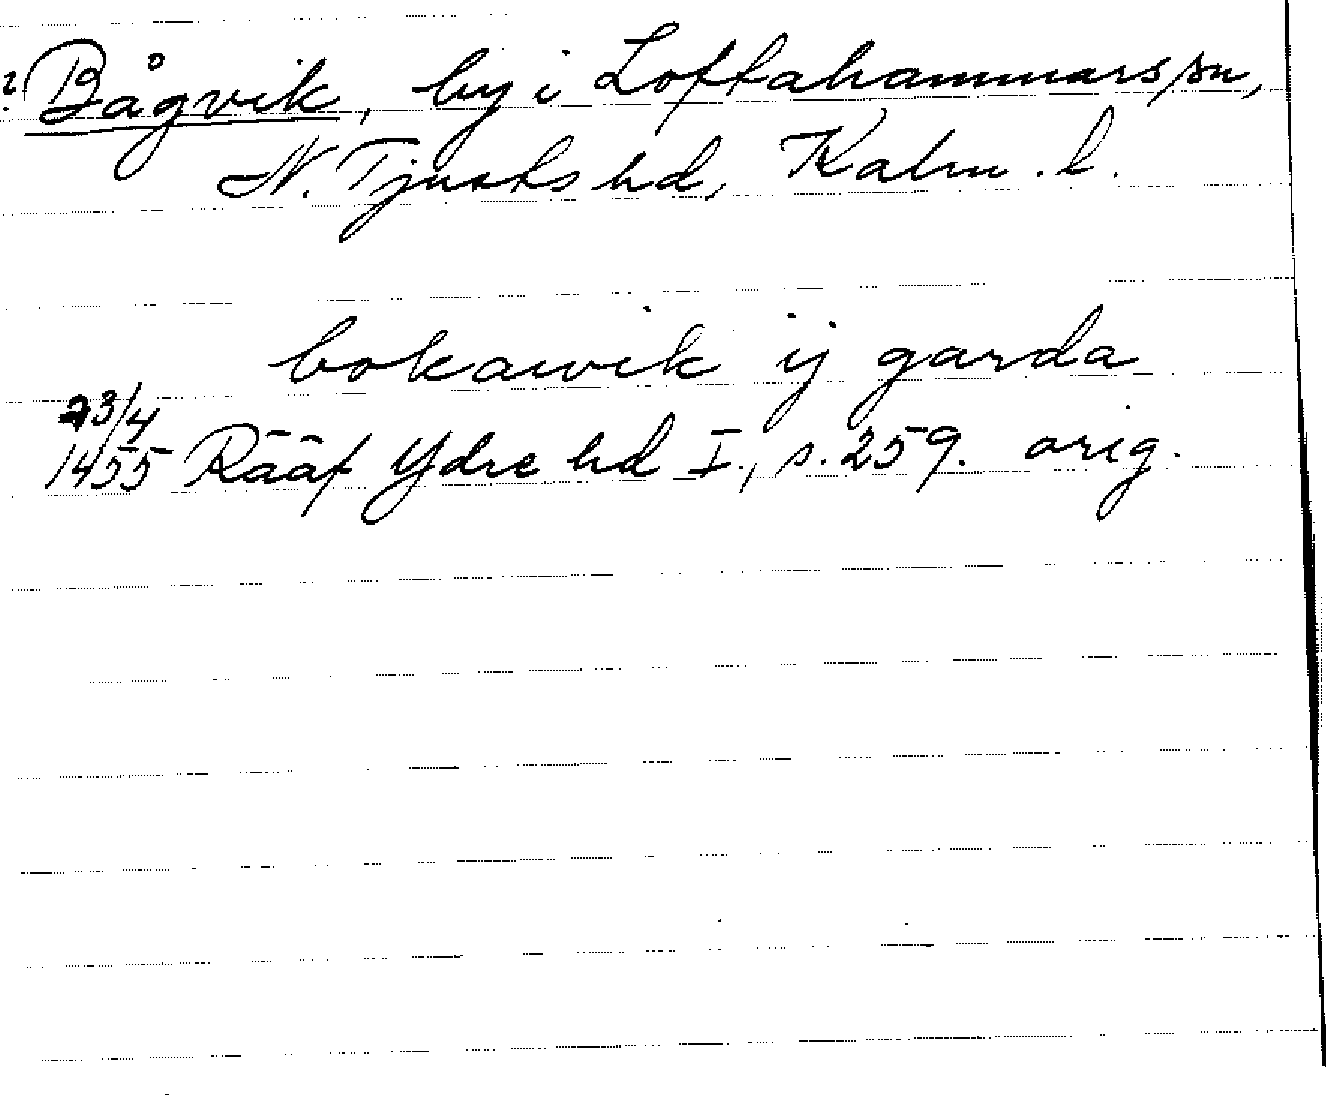 ? Bågvik, by i Loftahammars sn,
N. Tjusts hd, Kalm. l.
bokawik ij garda
23/4
1455 Rääf Ydre hd I., s. 259. orig.